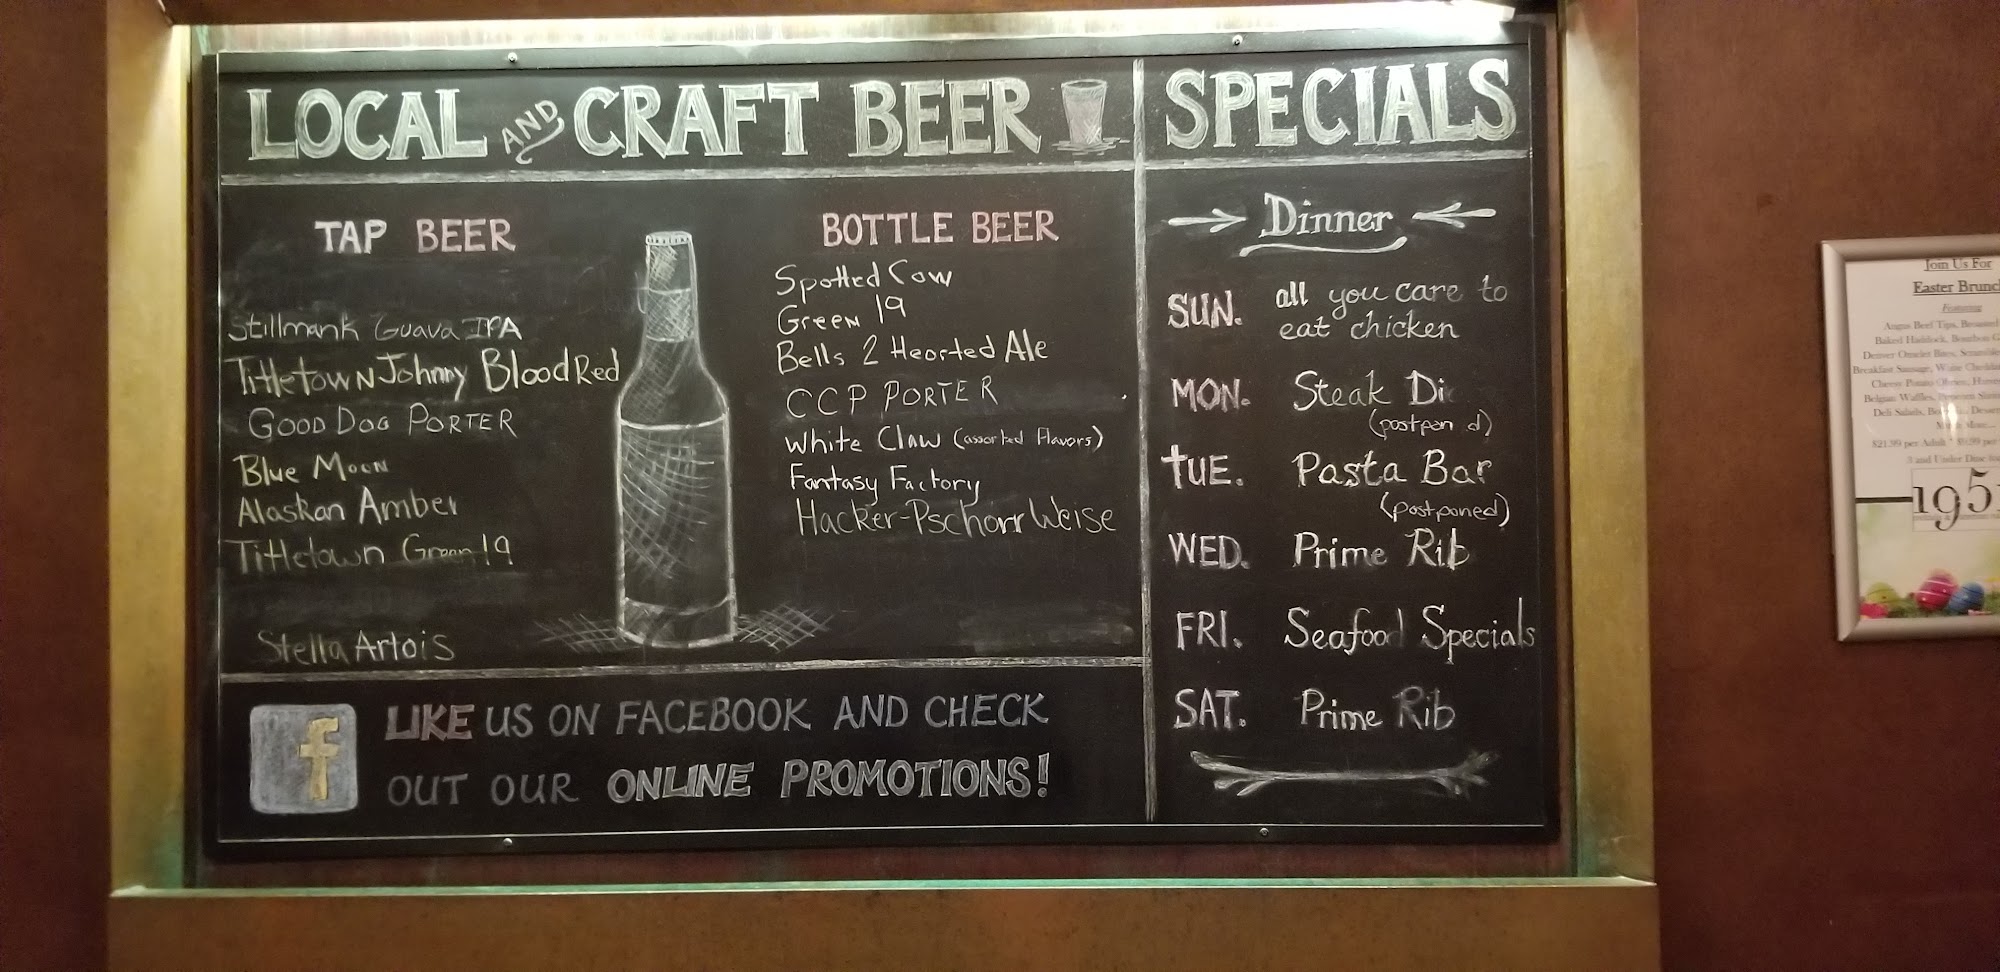 LOCAL AND CRAFT BEER
TAP BEER
Stillmank Guava IPA
Titletown Johnny Blood Red
GOOD DOG PORTER
Blue Moon
Alaskan Amber
Titletown Green 19
Stella Artois
BOTTLE BEER
Spotted Cow
Green 19
Bells 2 Hearted Ale
CCP PORTER
White Claw (assorted Flavors)
Fantasy Factory
Hacker-Pschorr Weise
LIKE US ON FACEBOOK AND CHECK
OUT OUR ONLINE PROMOTIONS!
f
SPECIALS
Dinner
SUN. all you care to
eat chicken
MON. Steak Di
(postpon d)
TUE. Pasta Bar
(postponed)
WED. Prime Rib
FRI. Seafood Specials
SAT. Prime Rib
Join Us For
Easter Brunch
Featuring
Angus Beef Tips, Broasted
Baked Haddock, Bourbon
Denver Omelet Bites,
Breakfast Sausage, White
Cheesy Potato
Belgian Waffles,
Deli Salads,
$21.99 per Adult
3 and Under Dine
1951